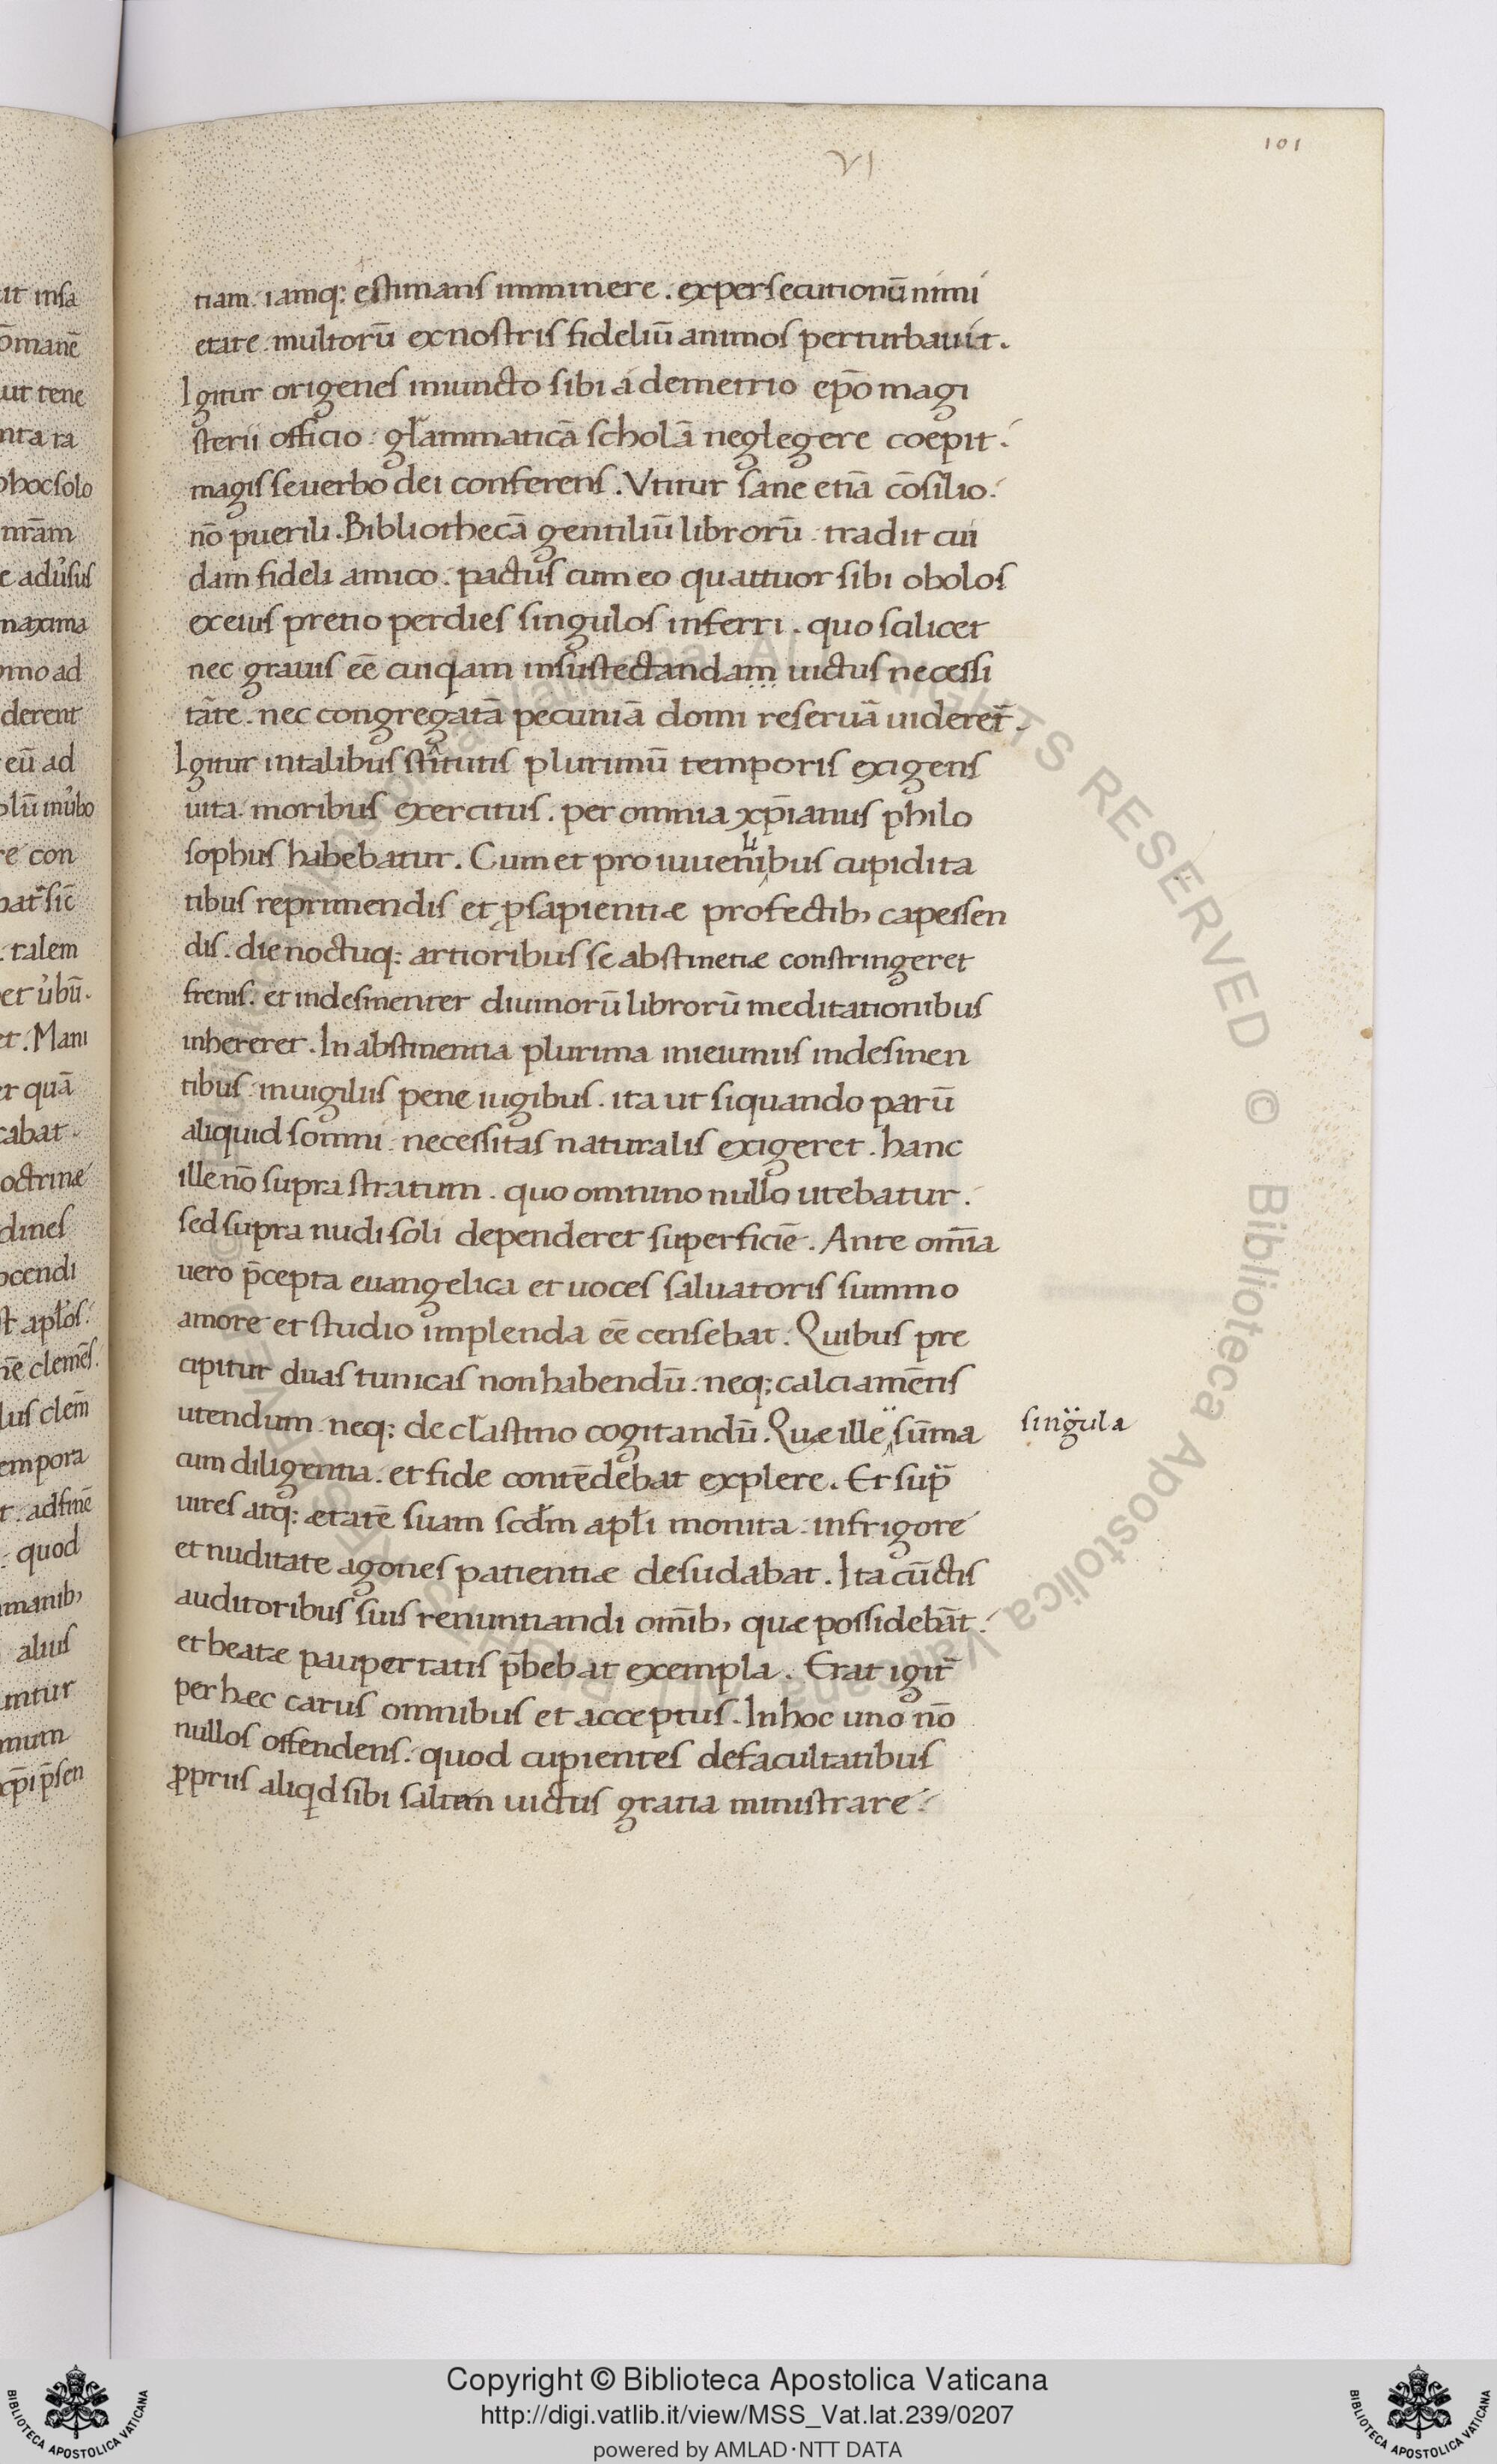 VI
101
tiam. iamq: estimans imminere. expersecutionū nimi
etate. multorū exnostris fideliū animos perturbauit.
Igitur origenes iniuncto sibi a demetrio ep̄o magi
sterii officio. gram̄maticā scholā neglegere coepit.
magis se uerbo dei conferens. Vtitur sane etiā cōsilio.
nō puerili. Bibliothecā gentiliū librorū. tradit cui
dam fideli amico. pactus cum eo quattuor sibi obolos
ex eius pretio perdies singulos inferri. quo scilicet
nec grauis eē cuiqam insustectandam uictus necessi
tāte. nec congregatā pecuniā domi reseruā uideret̄.
Igitur intalibus stitutis plurimū temporis exigens
uita. moribus exercitus. per omnia xp̄ianus philo
sophus habebatur. Cum et pro iuuenilibus cupidita
tibus reprimendis et ꝓsapientiæ profectib; capessen
dis. die noctuq: artioribus se abstinetiæ constringeret
frenis. et indesinenter diuinorū librorū meditationibus
inhereret. In abstinentia plurima inieiuniis indesinen
tibus. inuigiliis pene iugibus. ita ut siquando parū
aliquid somni. necessitas naturalis exigeret. hanc
ille nō supra stratum. quo omnino nullo utebatur.
sed supra nudi soli dependeret superficiē. Ante om̄ia
uero p̄cepta euangelica et uoces saluatoris summo
amore et studio implenda eē censebat. Quibus pre
cipitur duas tunicas non habendū. neq; calciamētis
utendum. neq: de clastino cogitandū. Quæ ille sūma
singula
cum diligentia. et fide contēdebat explere. Et sup̄
uires atq: ætatē suam scdm apli monita. infrigore
et nuditate agones patientiæ desudabat. Ita cūctis
auditoribus suis renuntiandi om̄ib; quæ possidebāt.
et beatæ paupertatis p̄bebat exempla. Erat igit̄
per hæc carus omnibus et acceptus. In hoc uno nō
nullos offendens. quod cupientes defacultatibus
ꝓpriis aliqd sibi saltem uictus gratia ministrare.
Copyright © Biblioteca Apostolica Vaticana
http://digi.vatlib.it/view/MSS_Vat.lat.239/0207
powered by AMLAD·NTT DATA